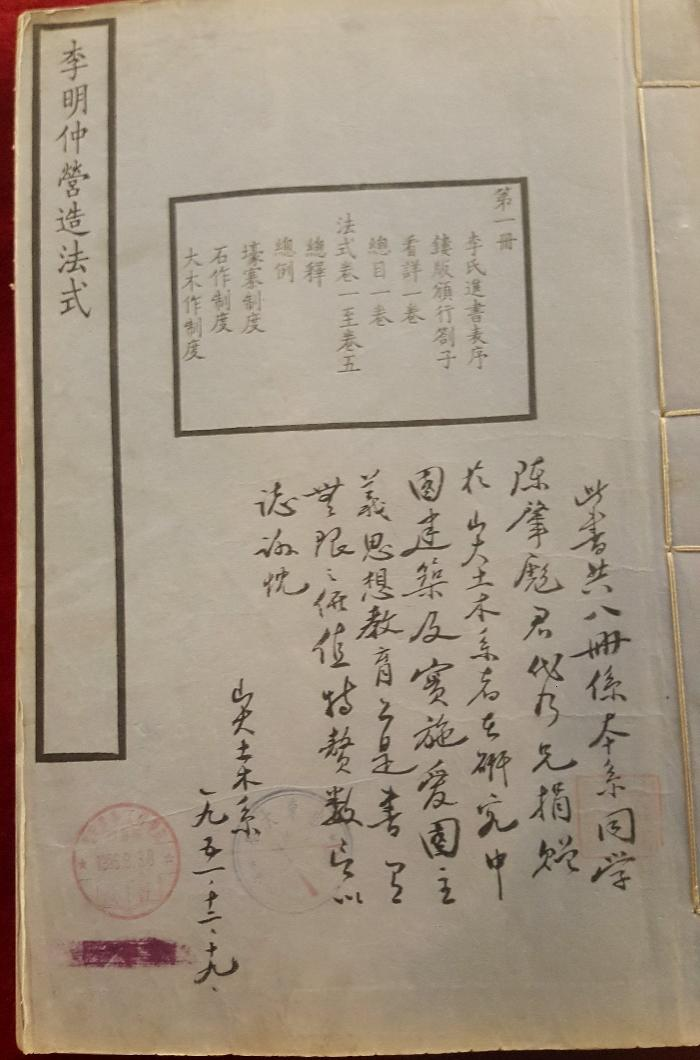 李明仲營造法式
第一冊
李氏進書表序
鏤版頒行劄子
看詳一卷
總目一卷
法式卷一至卷五
總釋
總例
壕寨制度
石作制度
大木作制度
此書共八冊係本系同学
陈肇彪君代乃兄捐贈
於山大土木系者在研究中
國建築及實施爱國主
義思想教育上是書有
無限之價值特贅数言以
誌謝忱
山大土木系
一九五一、十二、十九、